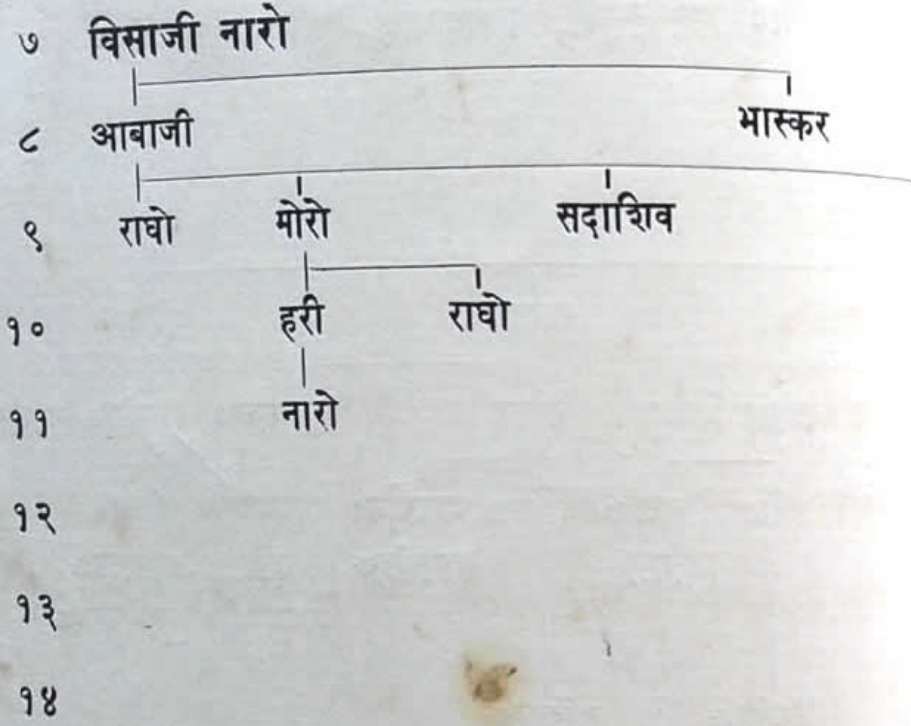 ७ विसाजी नारो
८ आबाजी भास्कर
९ राघो मोरो सदाशिव
१० हरी राघो
११ नारो
१२
१३
१४